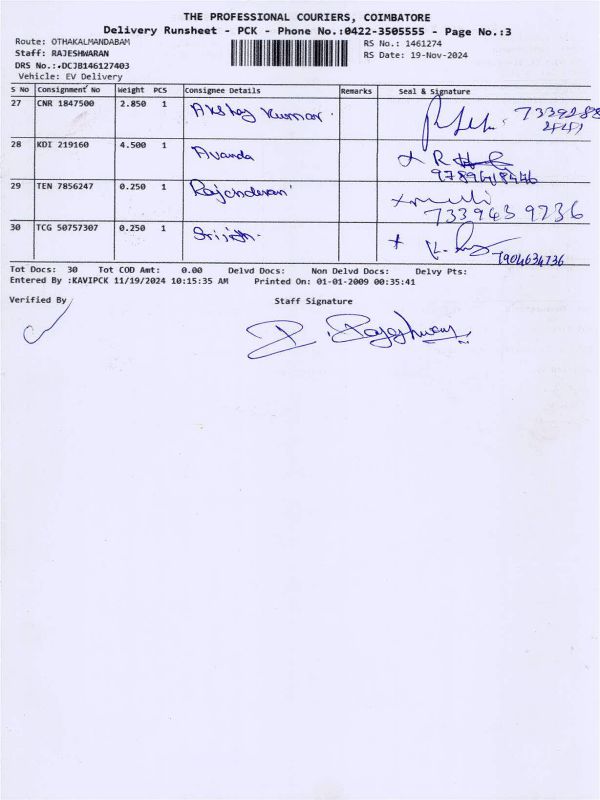 THE PROFESSIONAL COURIERS, COIMBATORE
Delivery Runsheet - PCK - Phone No.:0422-3505555 - Page No.:3
Route: OTHAKALMANDABAM RS No.: 1461274
Staff: RAJESHWARAN RS Date: 19-Nov-2024
DRS No.:.DCJB146127403
Vehicle: EV Delivery
S No Consignment No Weight PCS Consignee Details Remarks Seal & Signature
27 CNR 1847500 2.850 1 Akshay Kumar
28 KDI 219160 4.500 1 Avanda
29 TEN 7856247 0.250 1 7339439236
30 TCG 50757307 0.250 1 Srijith 7904634736
Tot Docs: 30 Tot COD Amt: 0.00 Delvd Docs: Non Delvd Docs: Delvy Pts:
Entered By :KAVIPCK 11/19/2024 10:15:35 AM Printed On: 01-01-2009 00:35:41
Verified By Staff Signature
R. Rajeshwaran